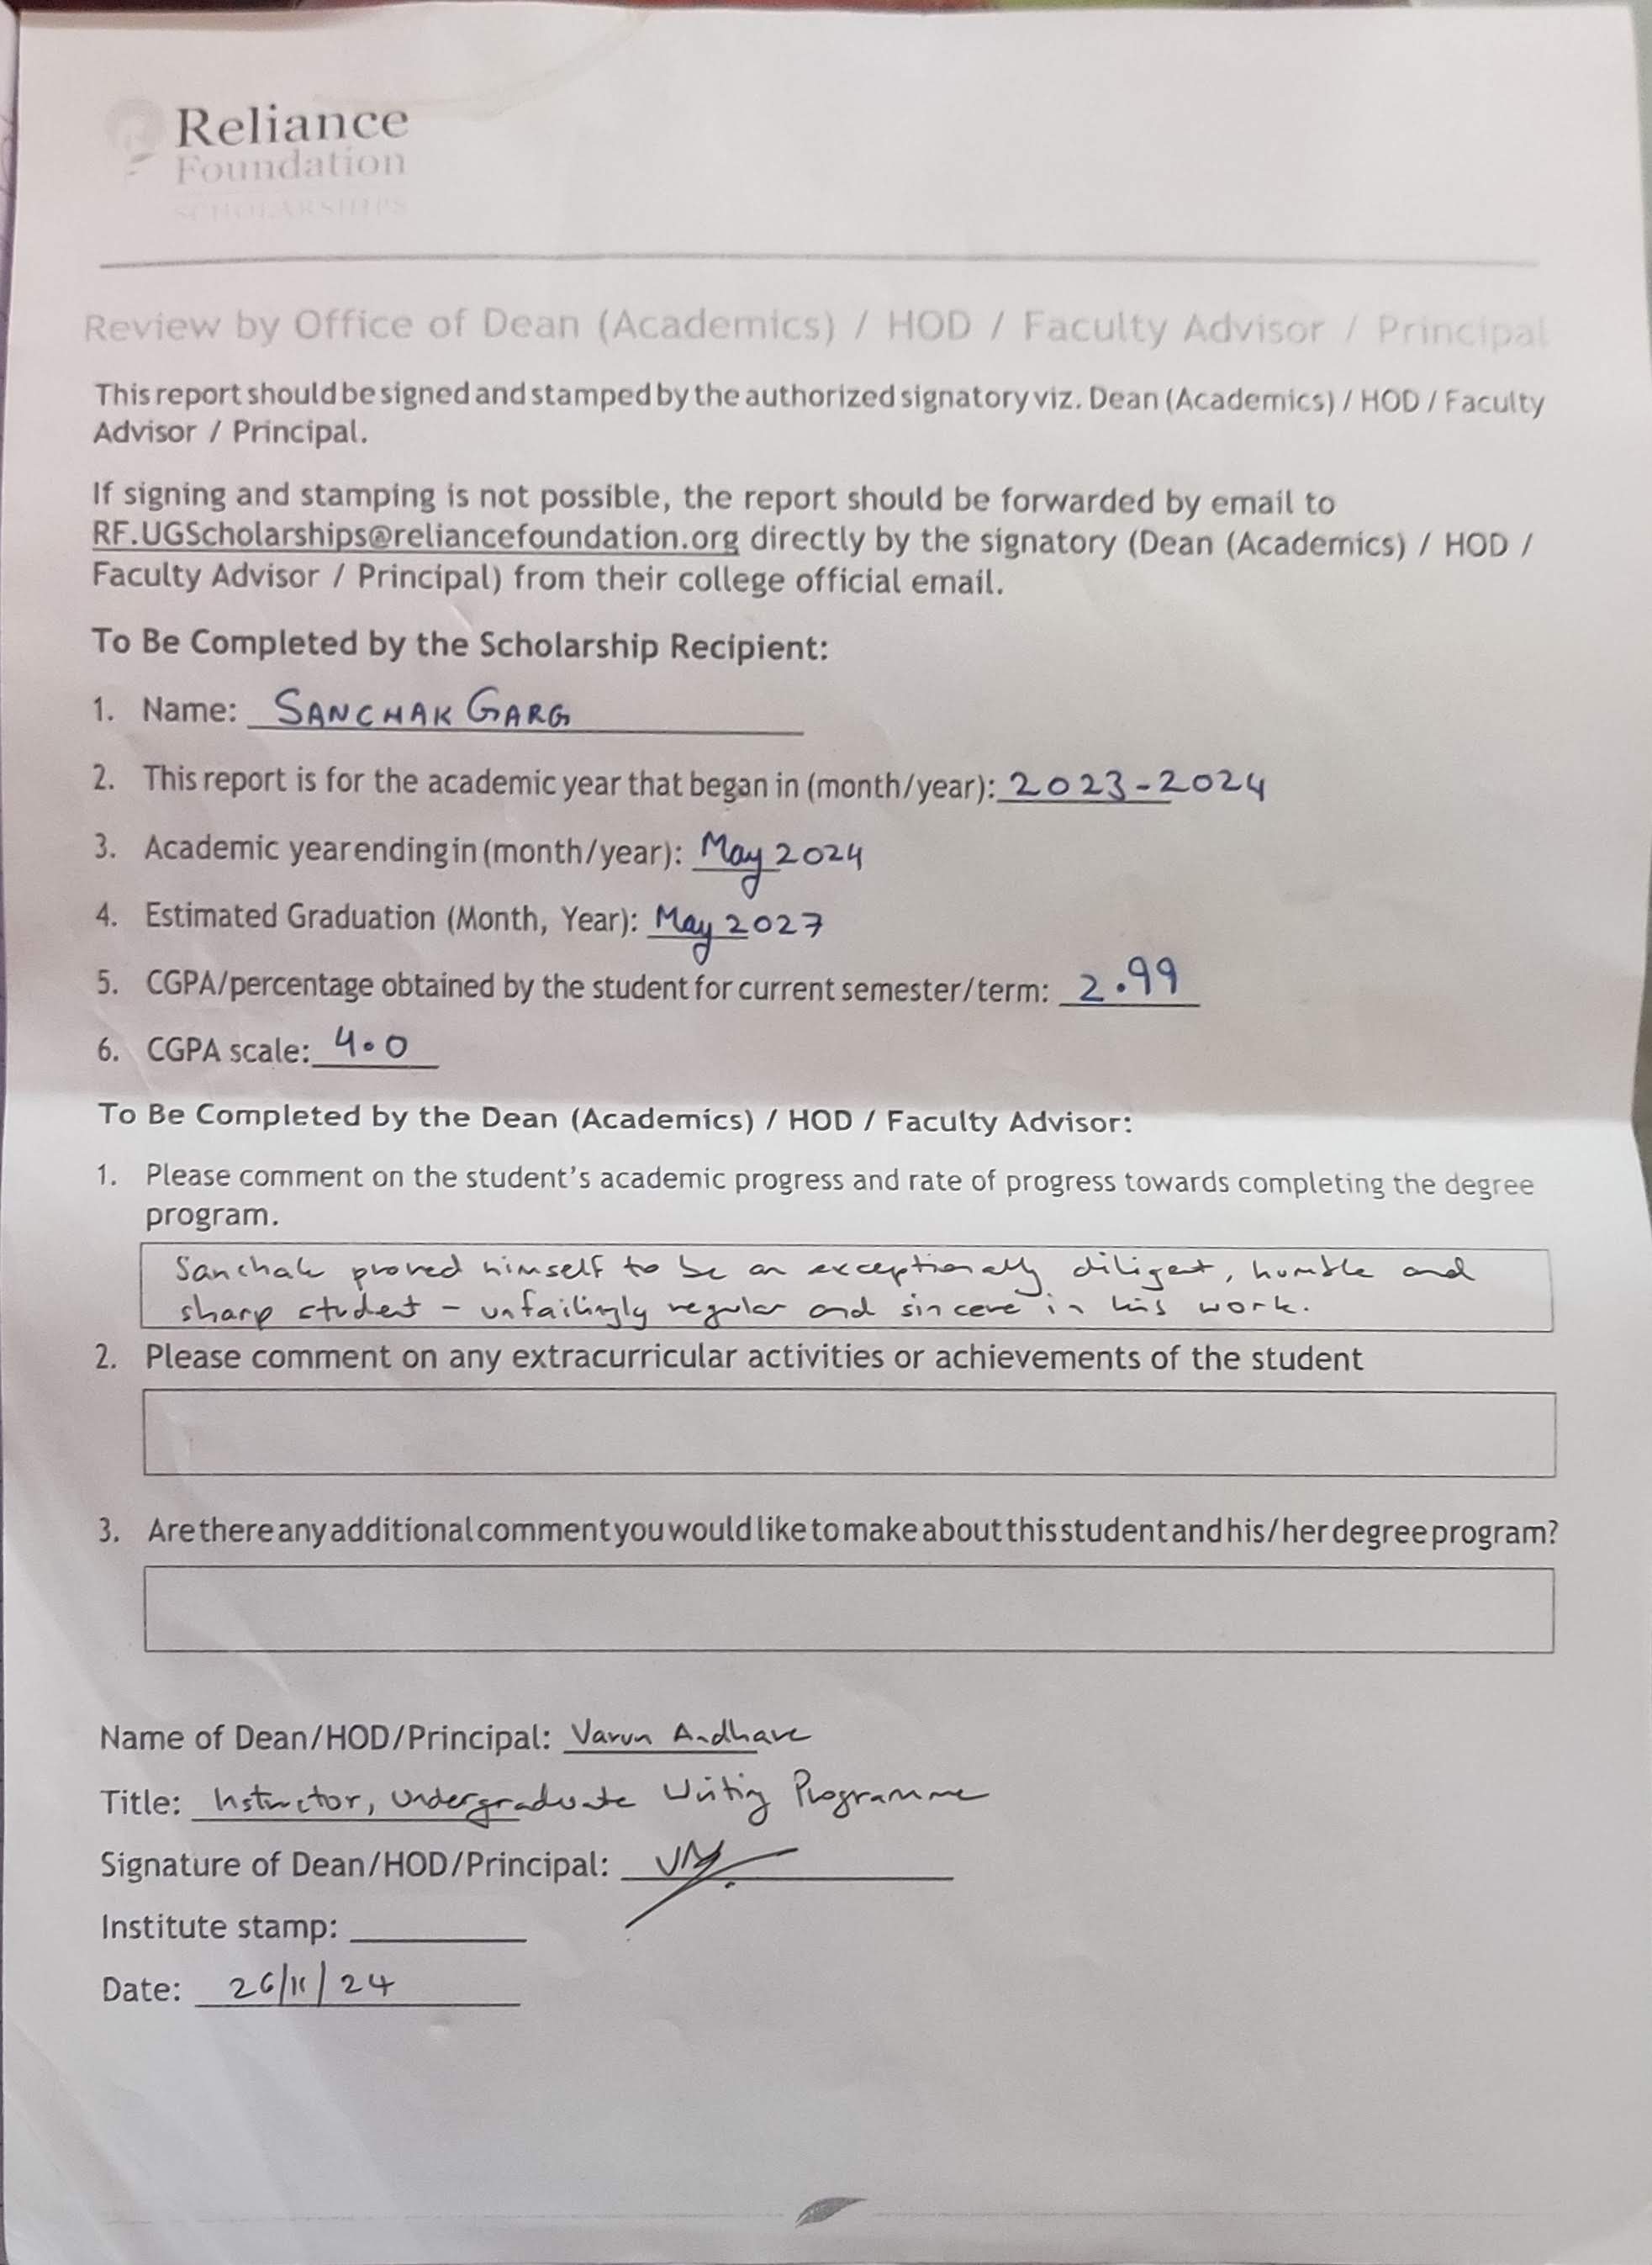 Reliance
Foundation
SCHOLARSHIPS
Review by Office of Dean (Academics) / HOD / Faculty Advisor / Principal
This report should be signed and stamped by the authorized signatory viz. Dean (Academics) / HOD / Faculty
Advisor / Principal.
If signing and stamping is not possible, the report should be forwarded by email to
RF.UGScholarships@reliancefoundation.org directly by the signatory (Dean (Academics) / HOD /
Faculty Advisor / Principal) from their college official email.
To Be Completed by the Scholarship Recipient:
1. Name: SANCHAK GARG
2. This report is for the academic year that began in (month/year): 2023-2024
3. Academic year ending in (month/year): May 2024
4. Estimated Graduation (Month, Year): May 2027
5. CGPA/percentage obtained by the student for current semester/term: 2.99
6. CGPA scale: 4.0
To Be Completed by the Dean (Academics) / HOD / Faculty Advisor:
1. Please comment on the student's academic progress and rate of progress towards completing the degree
program.
Sanchak proved himself to be an exceptionally diligent, humble and
sharp student - unfailingly regular and sincere in his work.
2. Please comment on any extracurricular activities or achievements of the student
3. Are there any additional comment you would like to make about this student and his/her degree program?
Name of Dean/HOD/Principal: Varun Andhare
Title: Instructor, Undergraduate Writing Programme
Signature of Dean/HOD/Principal:
Institute stamp:
Date: 26/11/24